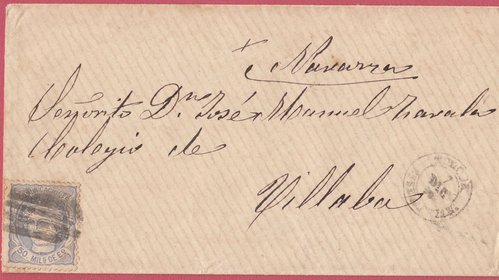 Navarra
Señorito Dn José Manuel Zavala
Colegio de
Villaba
50 MILS DE E.